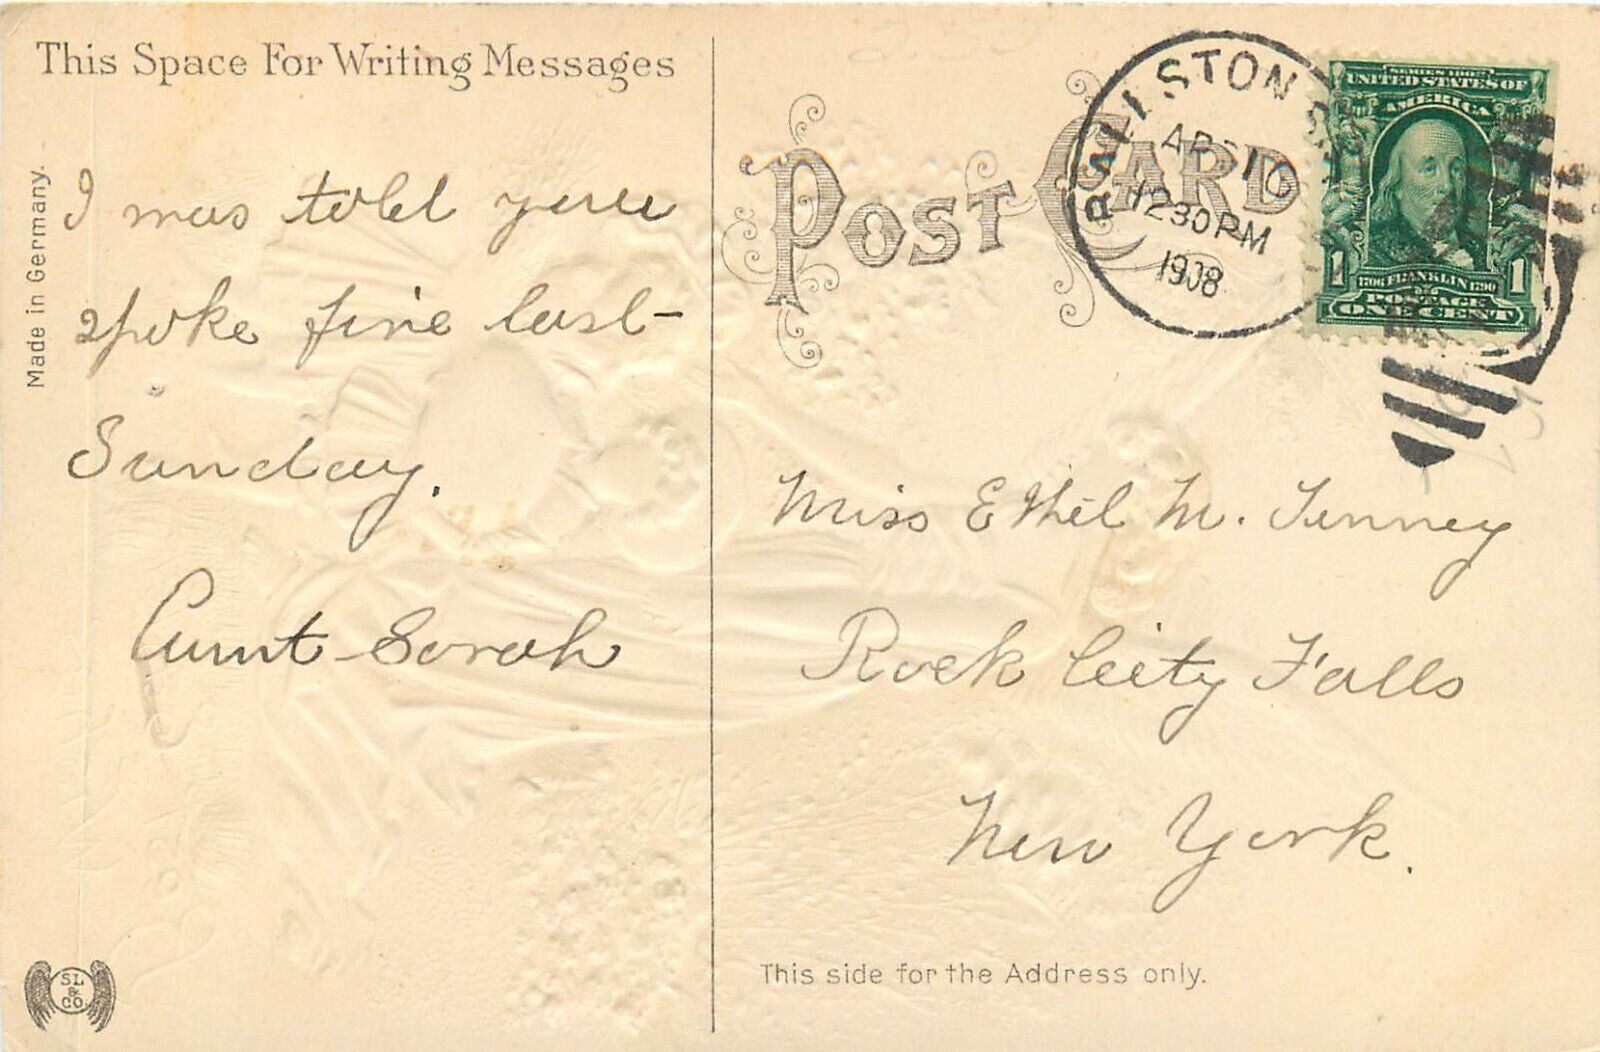 This Space For Writing Messages
Made in Germany.
I was told you
spoke fine last
Sunday.
Aunt Sarah
SL
&
Co.
POST CARD
BALLSTON SPA
AP 10
1230PM
1908
SERIES 1902
UNITED STATES OF
AMERICA
1 1706 FRANKLIN 1790 1
POSTAGE
ONE CENT
Miss Ethel M. Tenney
Rock City Falls
New York.
This side for the Address only.